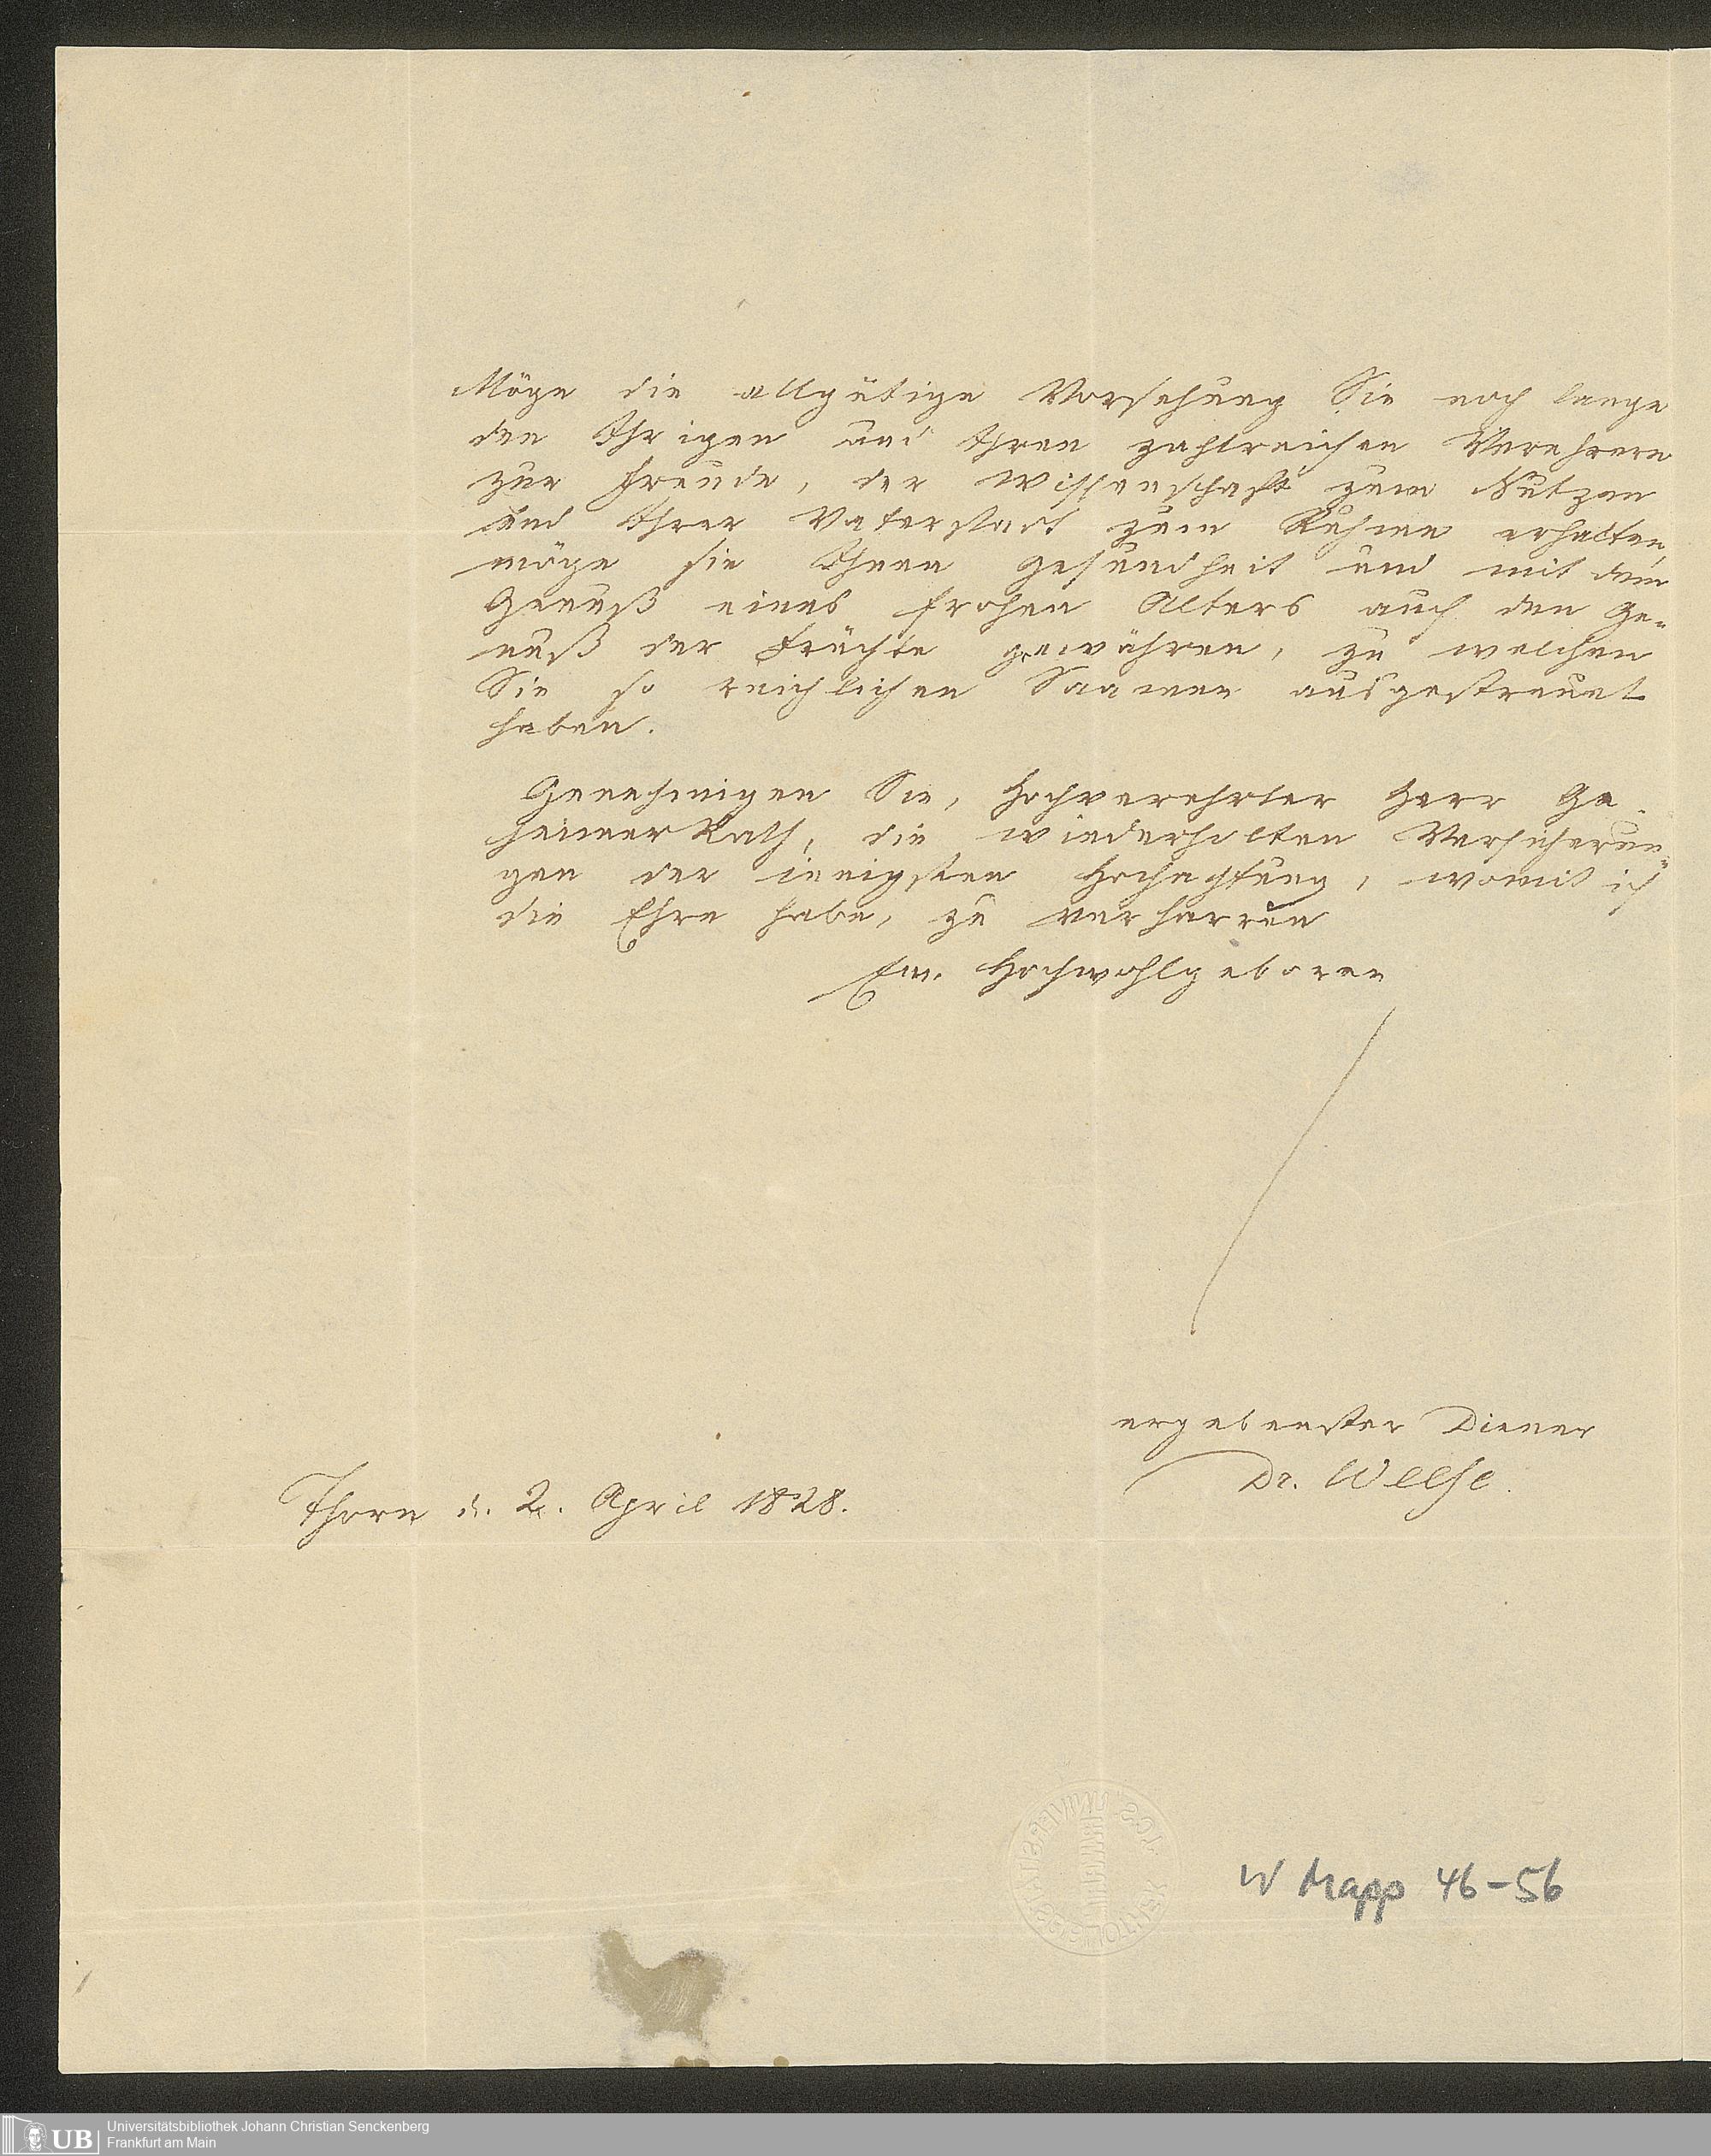 Möge die allgütige Vorsehung Sie noch lange
den Ihrigen und Ihren zahlreichen Verehrern
zur Freude, der Wissenschaft zum Nutzen
und Ihrer Vaterstadt zum Ruhme erhalten,
möge sie Ihnen Gesundheit und mit dem
Genuß eines frohen Alters auch den Ge-
nuß der Früchte gewähren, zu welchen
Sie so reichlichen Saamen ausgestreuet
haben.
Genehmigen Sie, Hochverehrter Herr Ge-
heimer Rath, die wiederholten Versicherun-
gen der innigsten Hochachtung, womit ich
die Ehre habe, zu verharren
Ew. Hochwohlgeboren
ergebenster Diener
Dr. Weese.
Thorn d. 2. April 1828.
W Mapp 46-56
UB
Universitätsbibliothek Johann Christian Senckenberg
Frankfurt am Main